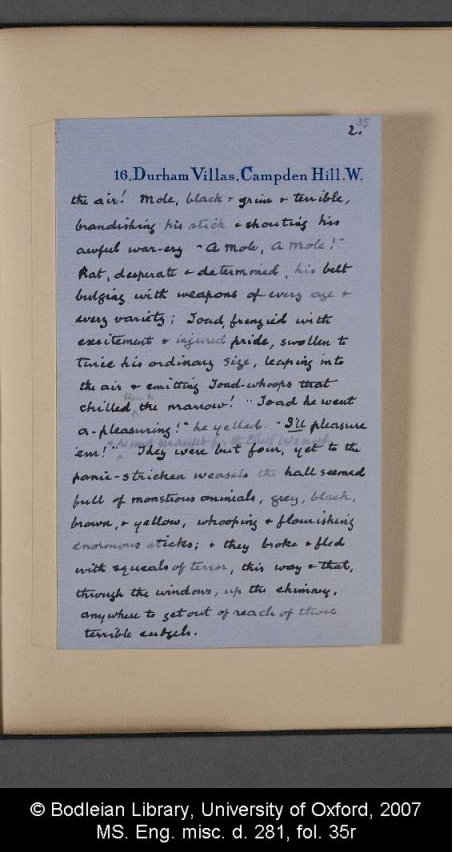 35
2.
16, Durham Villas, Campden Hill. W.
the air! Mole, black & grim & terrible,
brandishing his stick & shouting his
awful war-cry "A Mole, A Mole!"
Rat, desperate & determined, his belt
bulging with weapons of every age &
every variety; Toad, frenzied with
excitement & injured pride, swollen to
twice his ordinary size, leaping into
the air & emitting Toad-whoops that
chilled
them to
the marrow! "Toad he went
a-pleasuring!" he yelled. "I'll pleasure
'em!" They were but four, yet to the
panic-stricken weasels the hall seemed
full of monstrous animals, grey, black,
brown, & yellow, whooping & flourishing
enormous sticks; & they broke & fled
with squeals of terror, this way & that,
through the windows, up the chimney,
anywhere to get out of reach of those
terrible cudgels.
© Bodleian Library, University of Oxford, 2007
MS. Eng. misc. d. 281, fol. 35r